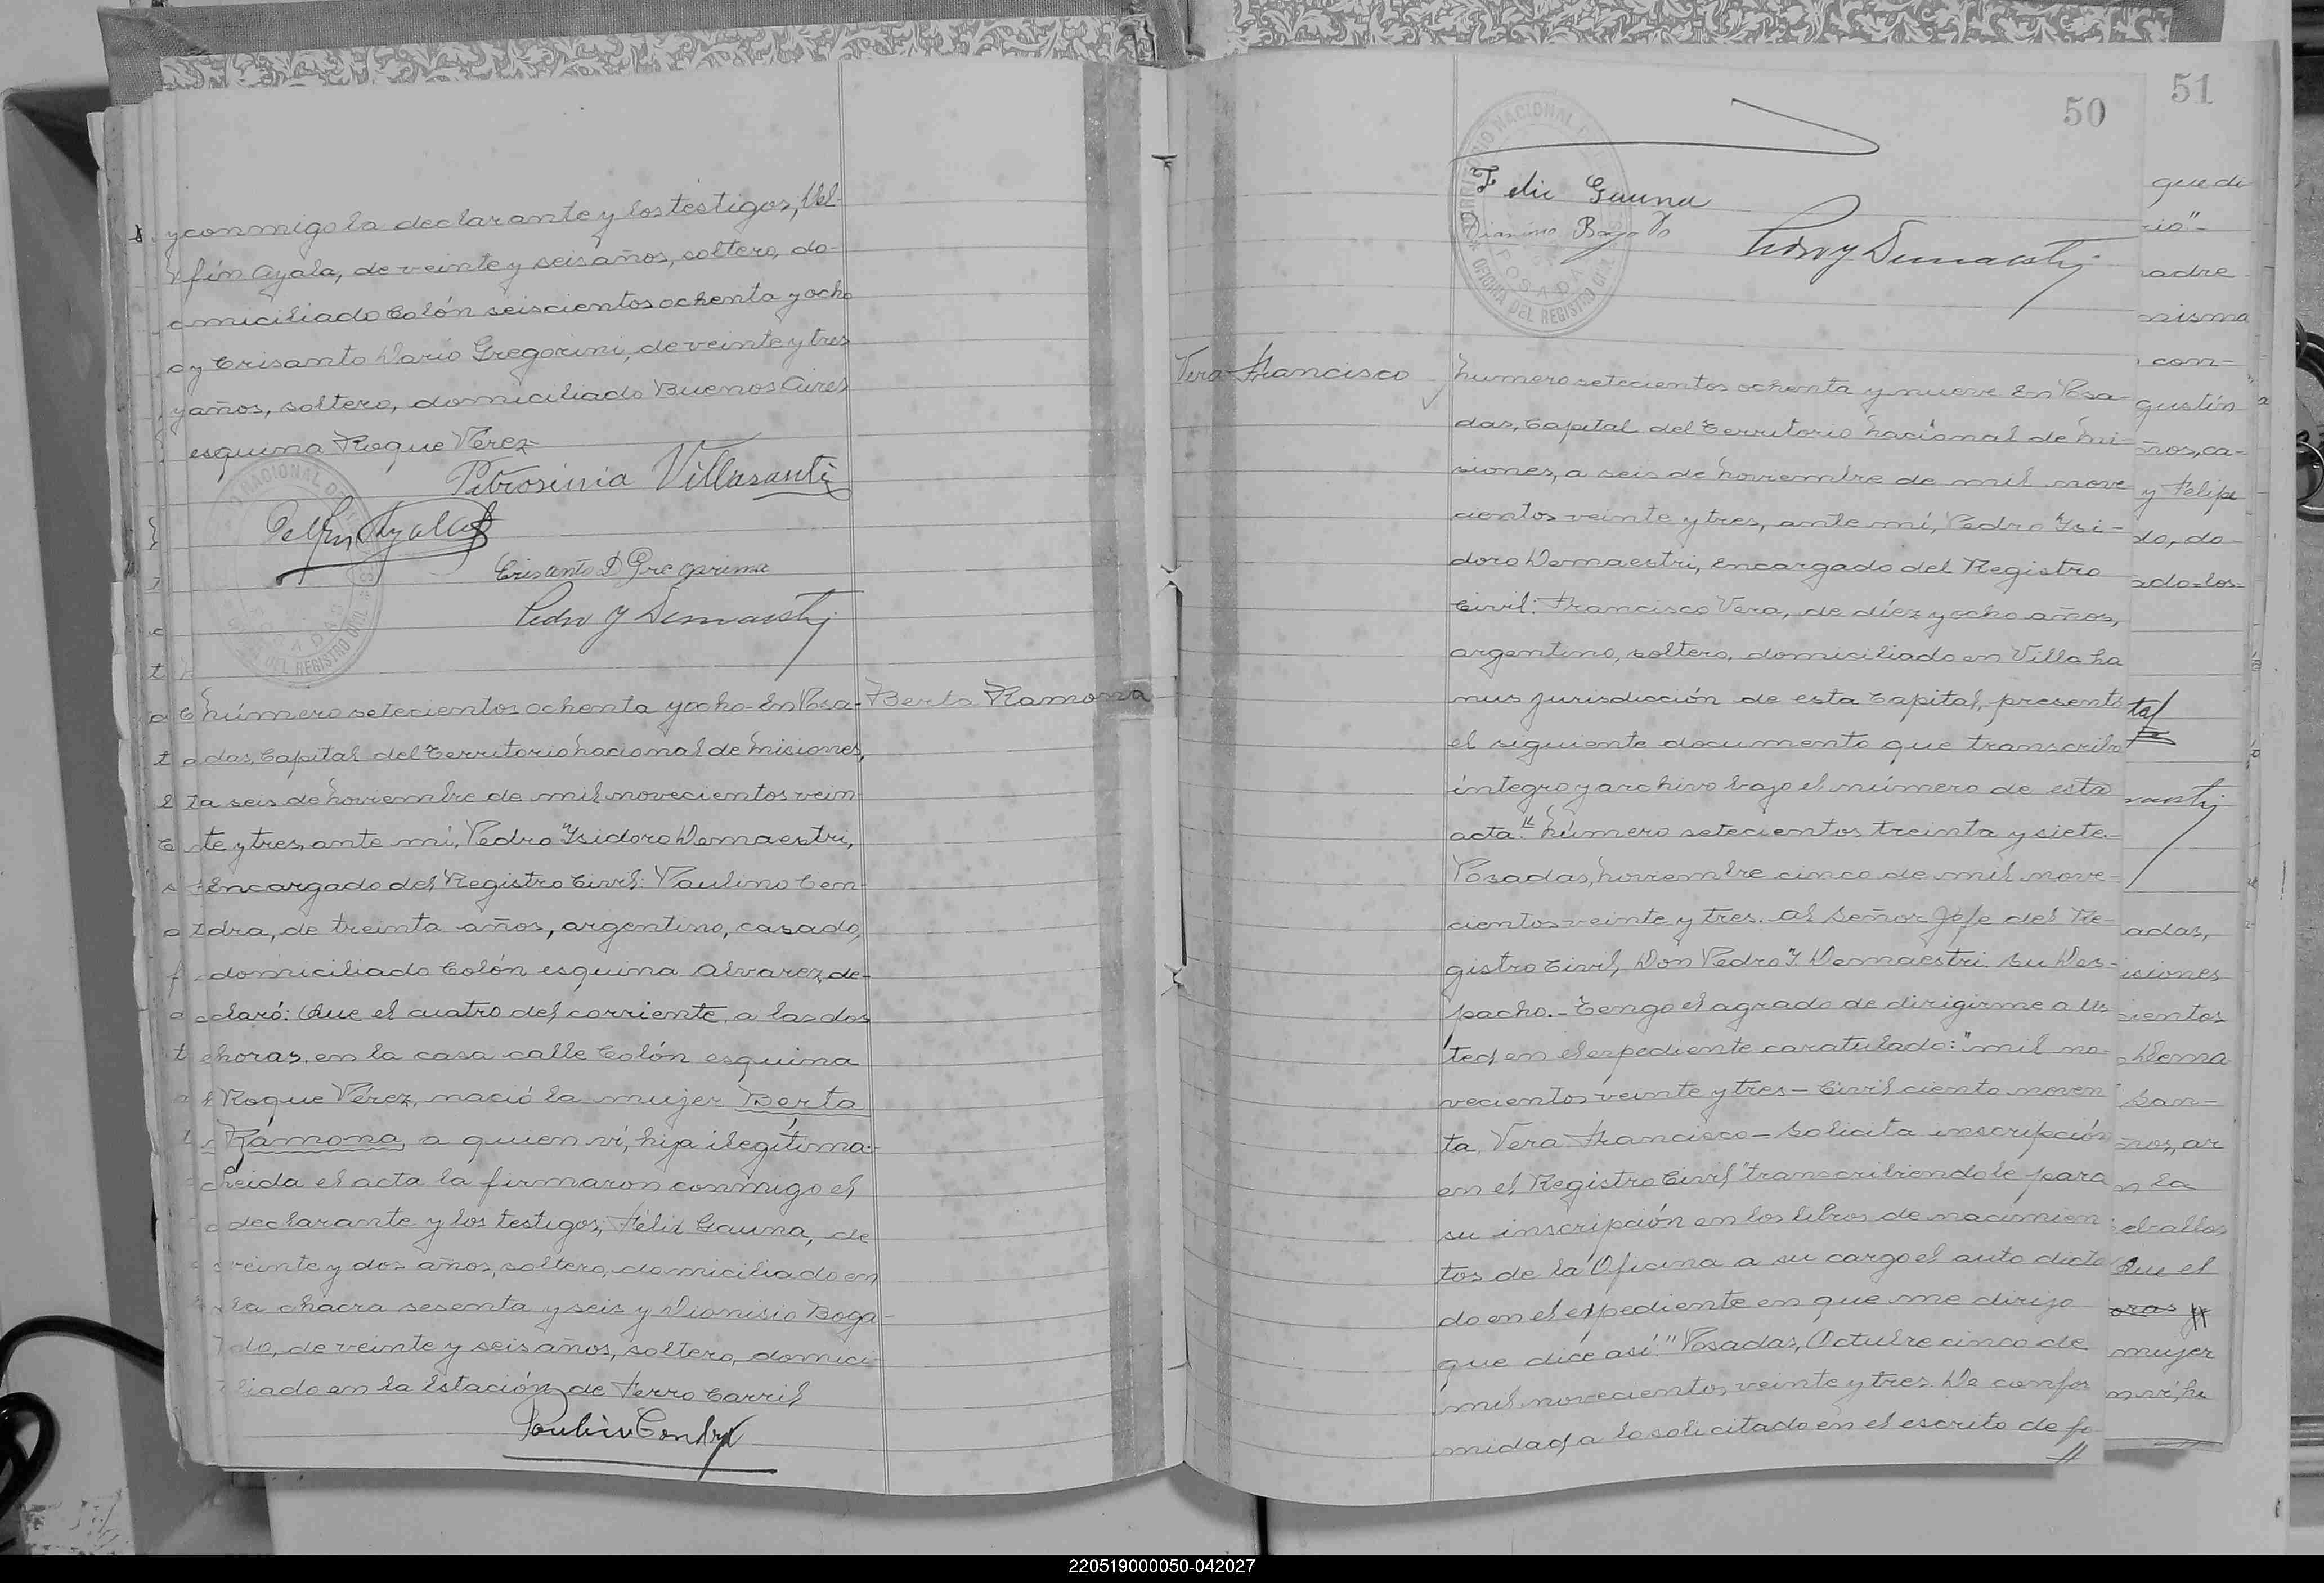 y conmigo la declarante y los testigos, Del-
fín Ayala, de veinte y seis años, soltero, do-
miciliado Colón seiscientos ochenta y ocho
y Crisanto Darío Gregorini, de veinte y tres
años, soltero, domiciliado Buenos Aires
esquina Roque Pérez-
Petrosinia Villasanti
Delfin Ayala
Crisanto D Gregorini
Pedro Y Demaestri
Número setecientos ochenta y ocho- En Posa-
Berta Ramona
das, Capital del Territorio Nacional de Misiones,
a seis de Noviembre de mil novecientos vein-
te y tres, ante mí, Pedro Ysidoro Demaestri,
Encargado del Registro Civil: Paulino Cen-
dra, de treinta años, argentino, casado,
domiciliado Colón esquina Alvarez, de-
claró: Que el cuatro del corriente, a las dos
horas, en la casa calle Colón esquina
Roque Pérez, nació la mujer Berta
Ramona, a quien ví, hija ilegítima.
Leida el acta la firmaron conmigo el
declarante y los testigos, Félix Gauna, de
veinte y dos años, soltero, domiciliado en
la chacra sesenta y seis y Dionisio Boga-
do, de veinte y seis años, soltero, domici-
liado en la Estación de Ferro Carril
Paulino Cendra
50
Felix Gauna
Dionisio Bogado
Pedro Y Demaestri
TERRITORIO NACIONAL
POSADAS
OFICINA DEL REGISTRO CIVIL
Vera Francisco
Número setecientos ochenta y nueve En Posa-
das, Capital del Territorio Nacional de Mi-
siones, a seis de Noviembre de mil nove
cientos veinte y tres, ante mí, Pedro Ysi-
doro Demaestri, Encargado del Registro
Civil: Francisco Vera, de díez y ocho años,
argentino, soltero, domiciliado en Villa La
nus jurisdicción de esta Capital, presentó
el siguiente documento que transcribo
íntegro y archivo bajo el número de esta
acta: "Número setecientos treinta y siete-
Posadas, Noviembre cinco de mil nove-
cientos veinte y tres. Al Señor Jefe del Re-
gistro Civil, Don Pedro Y. Demaestri. Su Des-
pacho.- Tengo el agrado de dirigirme a Us-
ted, en el expediente caratulado: "mil no-
vecientos veinte y tres- Civil ciento noven
ta, Vera Francisco- Solicita inscripción
en el Registro Civil" transcribiendole para
su inscripción en los libros de nacimien
tos de la Oficina a su cargo el auto dicta
do en el expediente en que me dirijo
que dice así: "Posadas, Octubre cinco de
mil novecientos veinte y tres. De confor
midad a lo solicitado en el escrito de fo
51
que di
rio"-
adre
misma
con-
gustín
ños, ca-
y Felipe
do, do
ado-los-
tal
adas,
isiones
cientos
Dema
San-
ños, ar
n la
eballos
Que el
oras y
mujer
n ví, hi
220519000050-042027